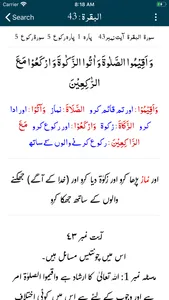 8:18 AM
البقرة : 43
سورة البقرة آیت نمبر 43 پارہ 1 پارہ رکوع 5 سورۃ رکوع 5
وَاَقِيْمُوا الصَّلٰوةَ وَاٰتُوا الزَّكٰوةَ وَارْكَعُوْا مَعَ
الرّٰكِعِيْنَ
وَاَقِيْمُوا : اور تم قائم کرو الصَّلَاةَ : نماز وَآتُوا : اور ادا
کرو الزَّکَاةَ : زکوۃ وَارْکَعُوْا : اور رکوع کرو مَعَ
الرَّاکِعِیْنَ : رکوع کرنے والوں کے ساتھ
اور نماز پڑھا کرو اور زکوٰۃ دیا کرو اور (خدا کے آگے) جھکنے
والوں کے ساتھ جھکا کرو
آیت نمبر ٤٣
اس میں چونتیس مسائل ہیں۔
مسئلہ نمبر 1: اللہ تعالیٰ کا ارشاد ہے واقیموا الصلوۃ امر
ہے اور وجوب کے لئے ہے اس میں کوئی اختلاف